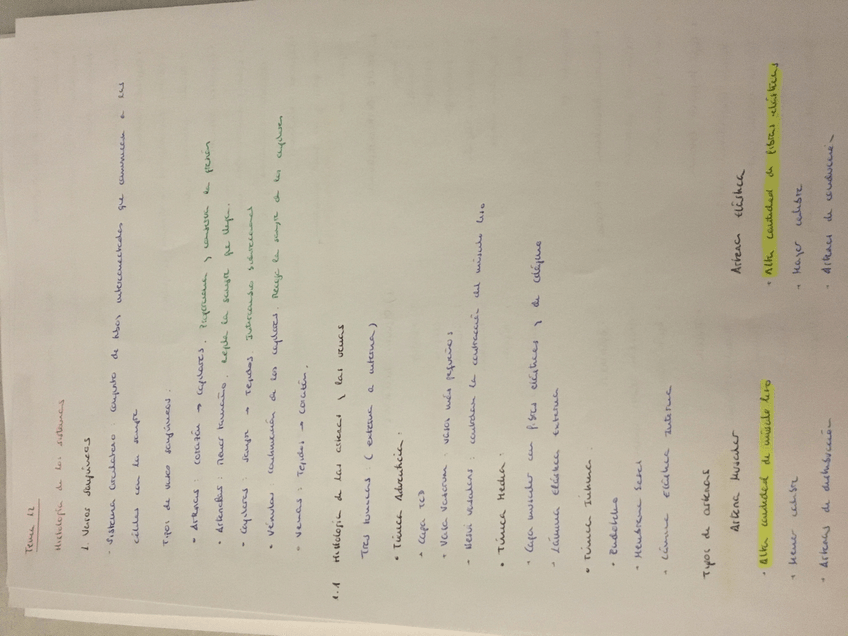 Tema 12
Histología de los sistemas
1. Vasos sanguíneos
- Sistema circulatorio: conjunto de tubos interconectados que comunican a las
células con la sangre
Tipos de vasos sanguíneos.
• Arterias: corazón → capilares. y la presión
• Arteriolas: menor tamaño. Regula la sangre que llega.
• Capilares: sangre → Tejidos Intercambio
• Vénulas: continuación de los capilares. Recoge la sangre de los capilares
• Venas: Tejidos → corazón.
1.1 Histología de las arterias y las venas
Tres túnicas: (externa a interna)
• Túnica Adventicia:
• Capa
• Vasa Vasorum: vasos más pequeños
• Nervi vasculares: controlan la contracción del músculo liso
• Túnica Media:
• Capa muscular con fibras elásticas y de colágeno
• Lámina elástica externa
• Túnica Íntima:
• Endotelio
• Membrana basal
• Lámina elástica interna
Tipos de arterias
Arteria Muscular Arteria elástica
• Alta cantidad de músculo liso • Alta cantidad de fibras elásticas
• Menor calibre • Mayor calibre
• Arterias de distribución • Arterias de conducción